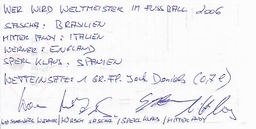 WER WIRD WELTMEISTER IM FUSSBALL 2006
SASCHA: BRASILIEN
MITTER ANDY: ITALIEN
WERNER: ENGLAND
SPERL KLAUS: SPANIEN
WETTEINSATZ: 1 GR. FL. Jack Daniels (0,7 l)
WERNER / HORSCH SASCHA / SPERL KLAUS / MITTER ANDY